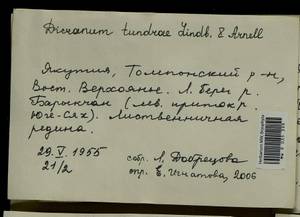 Dicranum tundrae Lindb. & Arnell
Якутия, Томпонский р-н,
Вост. Верхоянье. Л. берег р.
Барыкчан (лев. приток р.
Лиственничная
редина.
29.V.1955
21/2
собр. Л. Добрецова
опр. Е. Игнатова, 2006